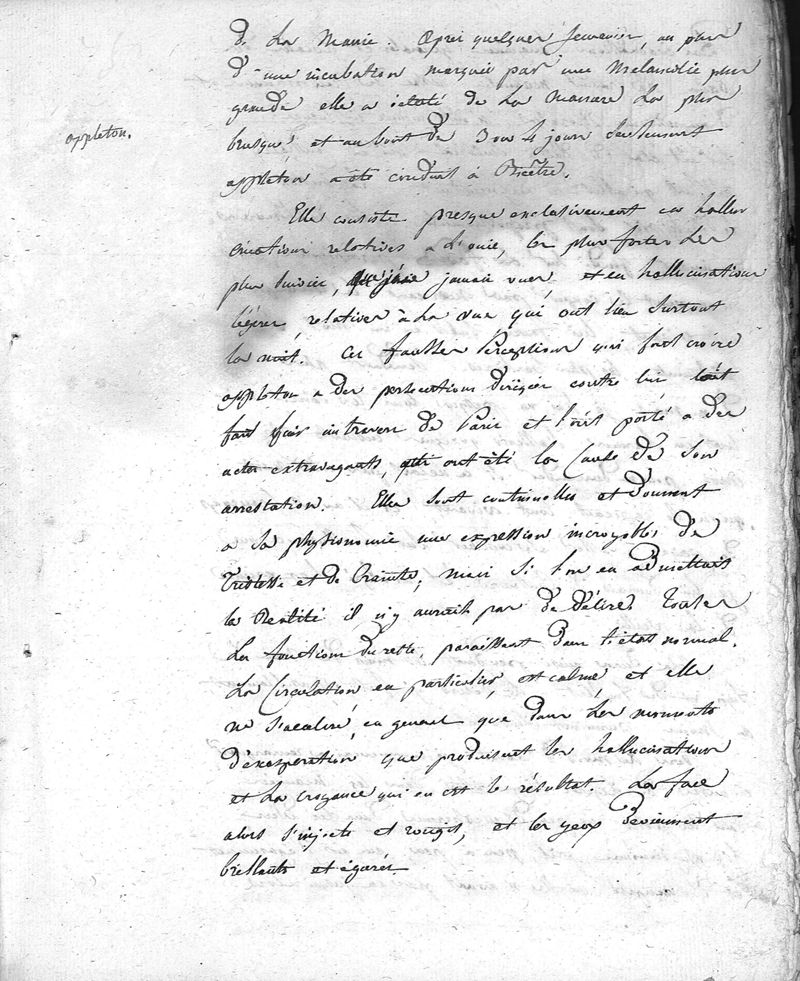 de la manie. Après quelques semaines, au plus
d'une incubation marquée par une mélancolie plus
grande elle a éclaté de la manière la plus
brusque et au bout de 3 ou 4 jours seulement
appleton.
appleton a été conduit à Bicêtre.
Elle consiste presque exclusivement en hallu
cinations relatives à l'ouie, les plus fortes les
plus suivies, jamais vues et en hallucinations
légères, relatives à la vue qui ont lieu surtout
la nuit. Ces fausses perceptions qui font croire
appleton a des persécutions dirigées contre lui
fait fuir au travers de Paris et l'ont porté a des
actes extravagants, qui ont été la cause de son
arrestation. Elles sont continuelles et donnent
a sa physionomie une expression incroyable de
Tristesse et de Crainte; mais si l'on en admettait
la Réalité il n'y aurait pas de délire. Toutes
les fonctions du reste, paraissent dans l'état normal.
La Circulation en particulier, est calme et elle
ne s'accélère, en général que dans les moments
d'exaspération que produisent les hallucinations
et la croyance qui en est le résultat. La face
alors s'injecte et rougit, et les yeux deviennent
brillants et égarés